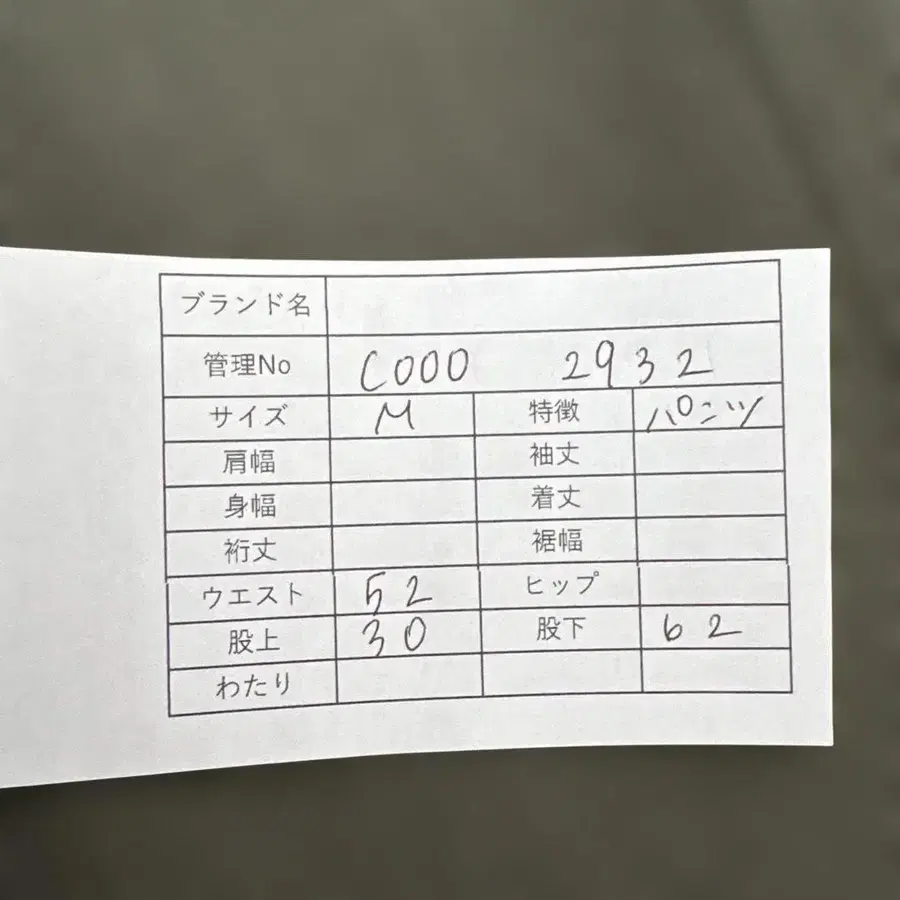 ブランド名
管理No C000 2932
サイズ M 特徴 パンツ
肩幅 袖丈
身幅 着丈
裄丈 裾幅
ウエスト 52 ヒップ
股上 30 股下 62
わたり